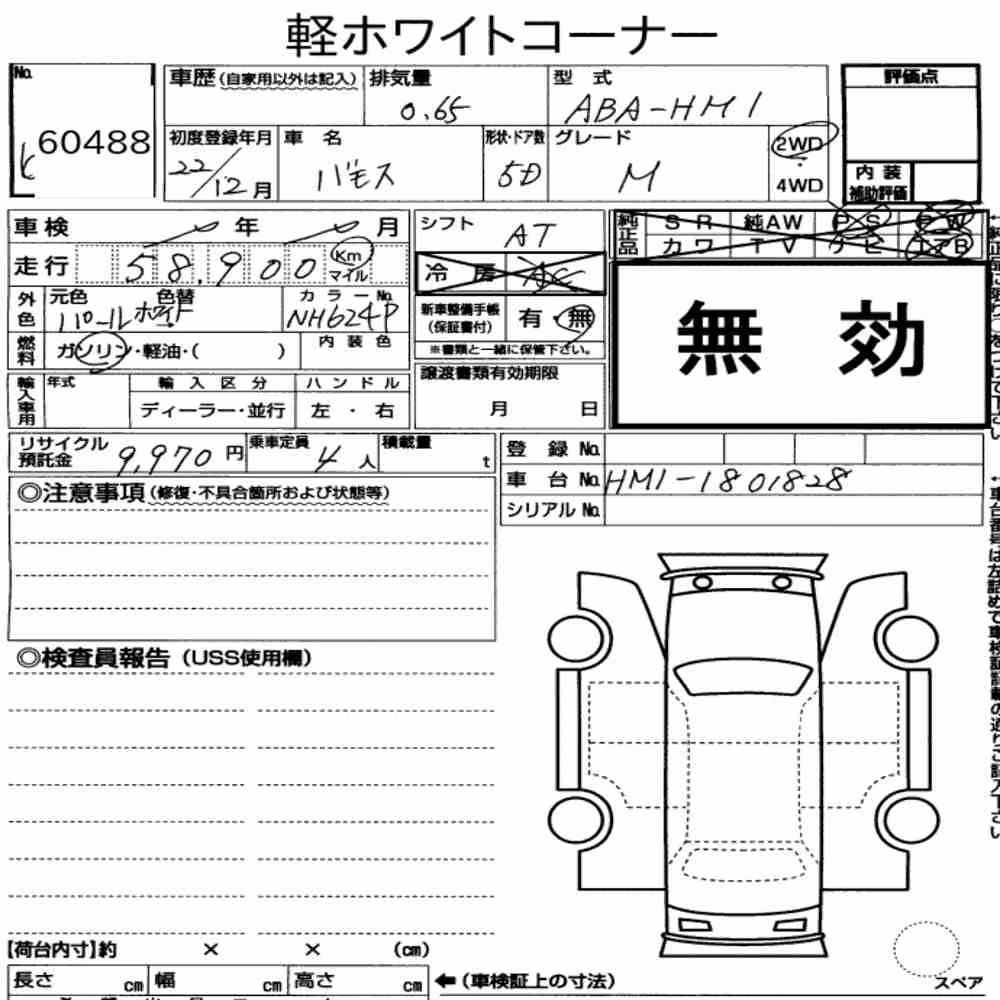 軽ホワイトコーナー
No.
60488
車歴(自家用以外は記入) 排気量 0.65 型式 ABA-HM1
初度登録年月 22/12月 車名 バモス 形状・ドア数 5D グレード M 2WD・4WD
評価点
内装補助評価
車検 年 月
走行 58,900 Km マイル
外色 元色 パールホワイト 色替 カラーNo. NH624P
燃料 ガソリン・軽油・( ) 内装色
輸入車用 年式 輸入区分 ハンドル
ディーラー・並行 左・右
シフト AT
冷房 AC
新車整備手帳(保証書付) 有・無
※書類と一緒に保管下さい。
譲渡書類有効期限
月 日
純正品 SR 純AW PS PW
カワ TV ナビ エアB
無効
リサイクル預託金 9,970円 乗車定員 4人 積載量 t
登録No.
車台No. HM1-1801828
シリアルNo.
◎注意事項(修復・不具合箇所および状態等)
◎検査員報告(USS使用欄)
【荷台内寸】約 × × (cm)
長さ cm 幅 cm 高さ cm
←(車検証上の寸法)
スペア
←車台番号は左詰めで車検証記載の通りご記入下さい